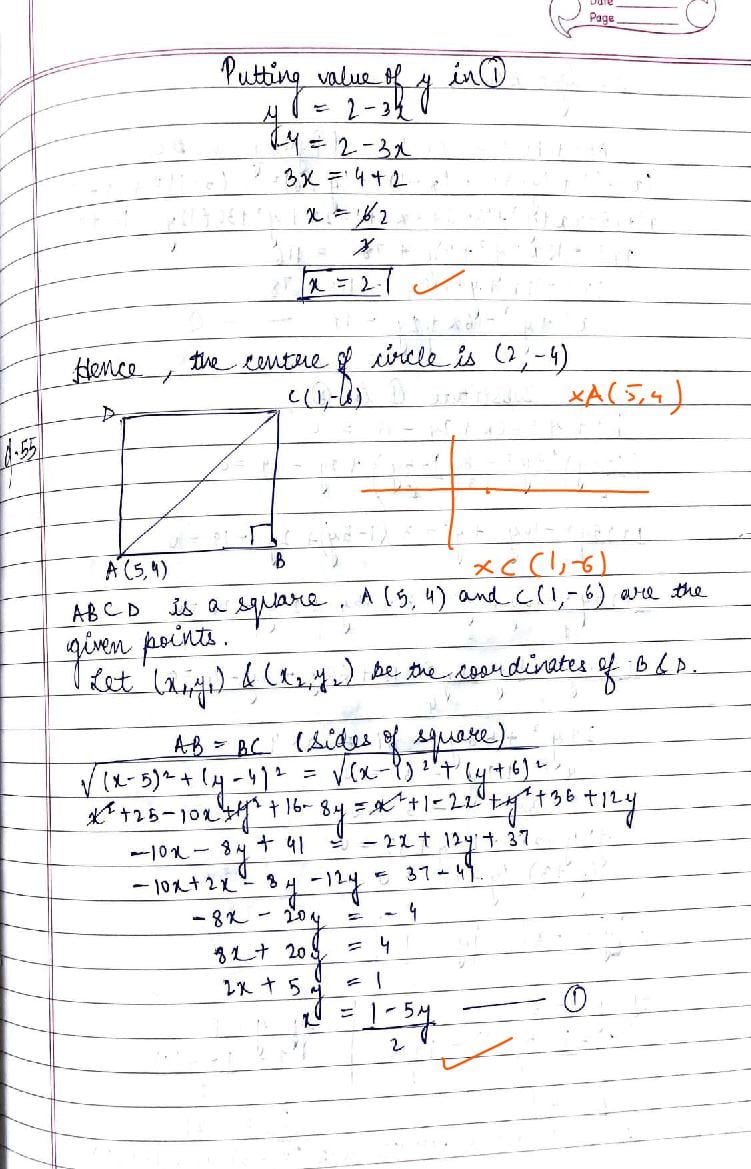 Date
Page
Putting value of y in ①
y = 2-3x
-4 = 2-3x
3x = 4+2
x = 6 2
3
x = 2
Hence, the centere of circle is (2,-4)
C(1,-6)
xA(5,4)
D
Q.55
A(5,4)
B
xC(1,-6)
ABCD is a square. A(5,4) and C(1,-6) are the
given points.
Let (x₁,y₁) & (x₂,y₂) be the coordinates of B & D.
AB = BC (Sides of square)
√(x-5)²+(y-4)² = √(x-1)²+(y+6)²
x²+25-10x+y²+16-8y = x²+1-2x+y²+36+12y
-10x-8y+41 = -2x+12y+37
-10x+2x-8y-12y = 37-41.
-8x-20y = -4
8x+20y = 4
2x+5y = 1
x = 1-5y —— ①
2